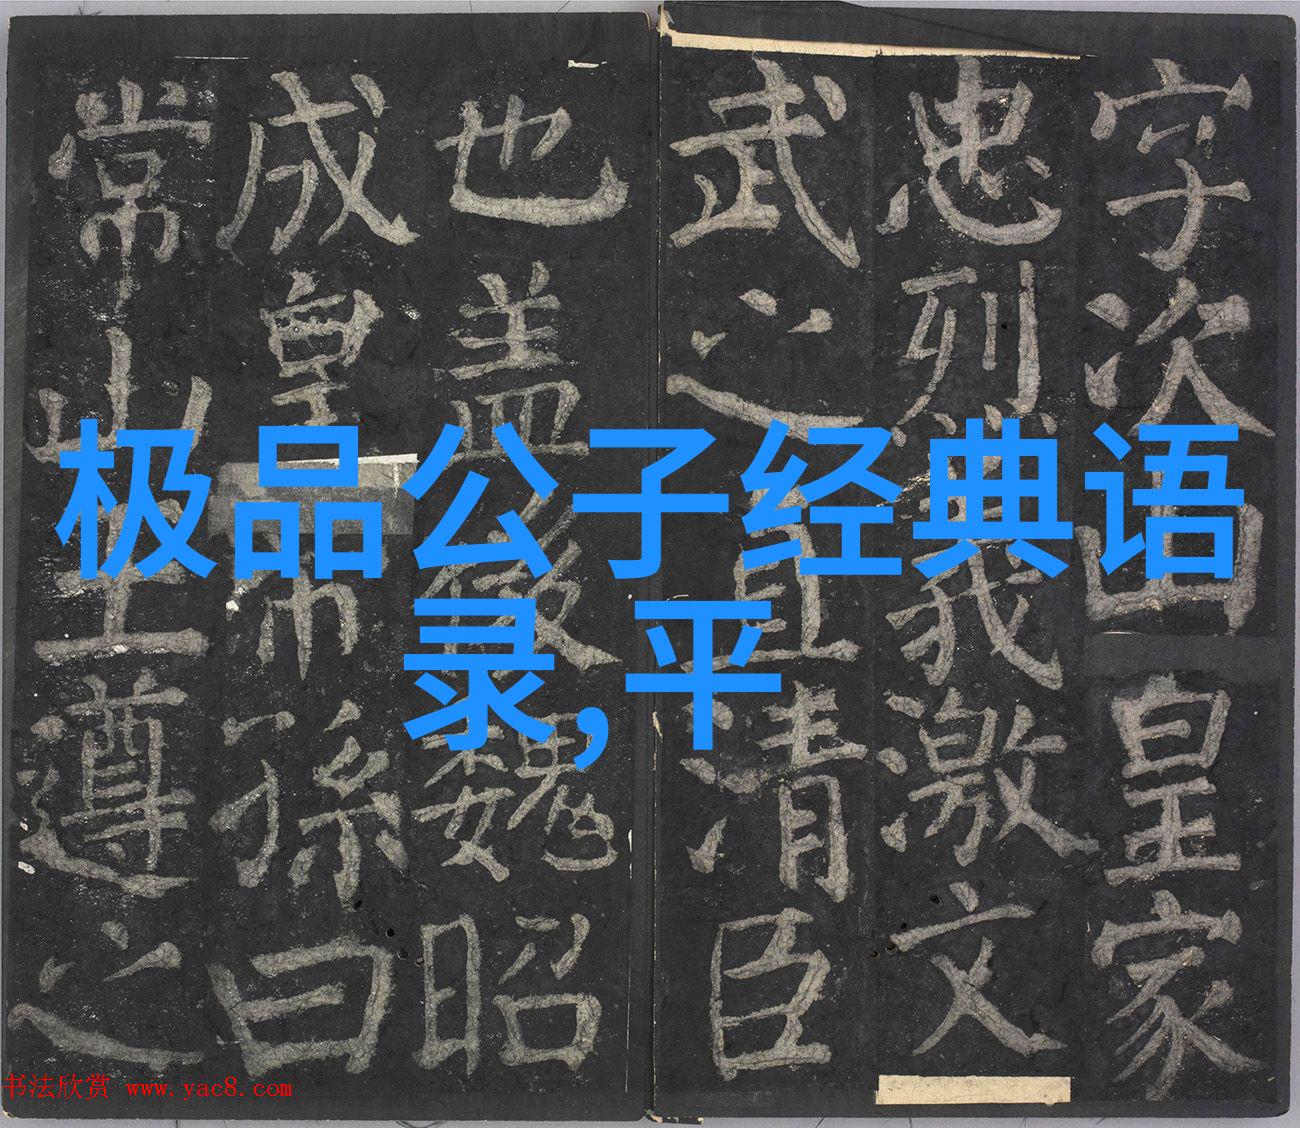 极品公子经典语
录,平
字次山皇家
忠烈義激文
武之直清臣
也盖後魏昭
成皇帝孫曰
常山王遵之
书法欣赏 www.yac8.com